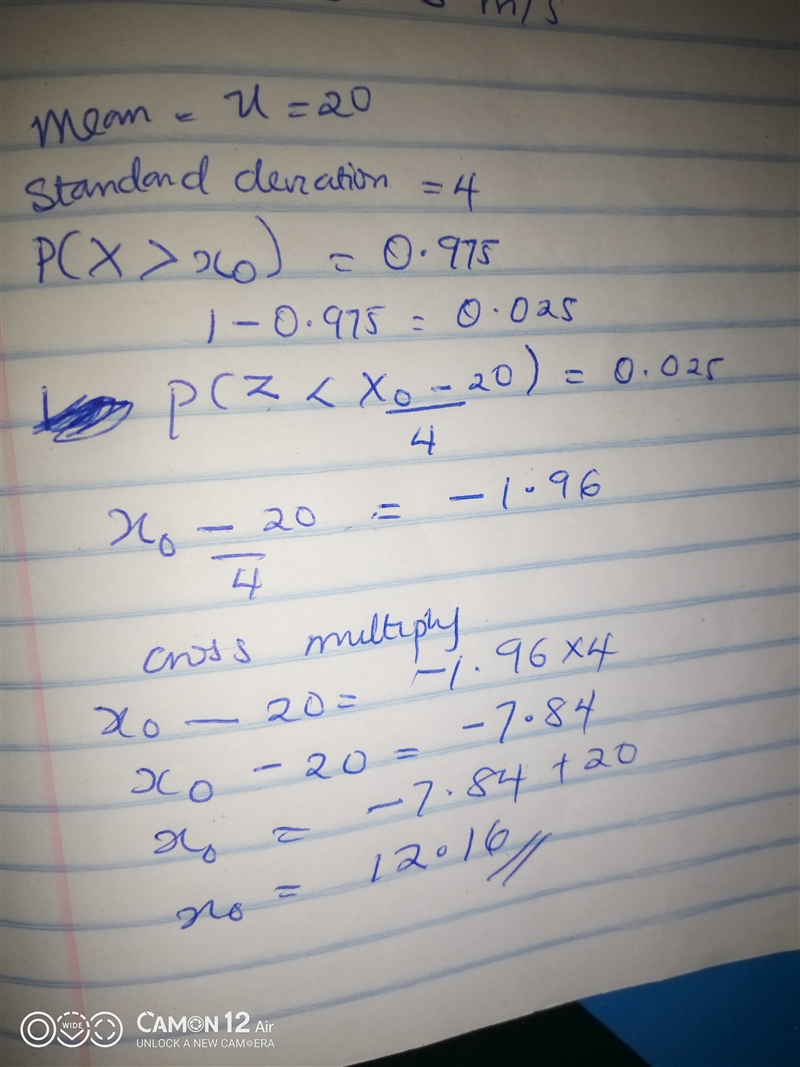 m/s
Mean = u = 20
Standard deviation = 4
P(X > x₀) = 0.975
1 - 0.975 = 0.025
P(Z < X₀ - 20) = 0.025
4
x₀ - 20 = -1.96
4
cross multiply
x₀ - 20 = -1.96 x 4
x₀ - 20 = -7.84
x₀ = -7.84 + 20
x₀ = 12.16 //
WIDE
CAMON 12 Air
UNLOCK A NEW CAM⊙ERA